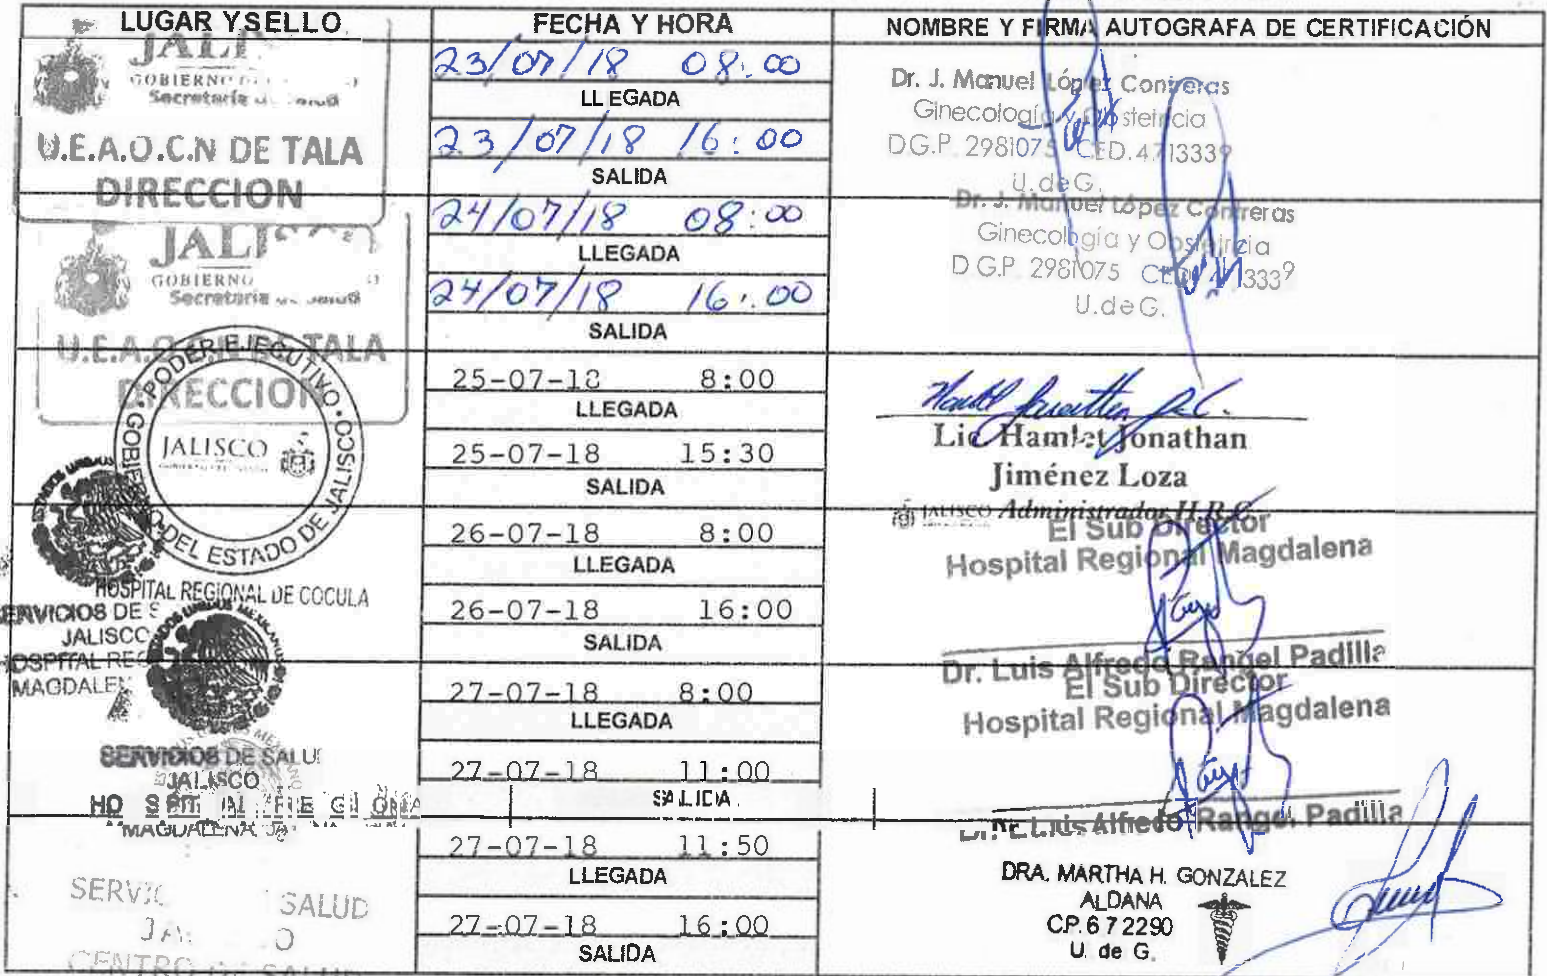 LUGAR Y SELLO
FECHA Y HORA
NOMBRE Y FIRMA AUTOGRAFA DE CERTIFICACIÓN
GOBIERNO
Secretaría
U.E.A.O.C.N DE TALA
DIRECCION
23/07/18 08:00
LLEGADA
23/07/18 16:00
SALIDA
Dr. J. Manuel López Contreras
Ginecología y Obstetricia
D.G.P. 2981075 CED. 4713339
U. de G.
GOBIERNO
Secretaría
U.E.A.O.C.N DE TALA
DIRECCION
24/07/18 08:00
LLEGADA
24/07/18 16:00
SALIDA
Dr. J. Manuel López Contreras
Ginecología y Obstetricia
D.G.P. 2981075 CED. 4713339
U. de G.
PODER EJECUTIVO
GOBIERNO DEL ESTADO DE JALISCO
JALISCO
HOSPITAL REGIONAL DE COCULA
25-07-18 8:00
LLEGADA
25-07-18 15:30
SALIDA
Lic Hamlet Jonathan
Jiménez Loza
JALISCO Administrador H.R.C.
SERVICIOS DE
JALISCO
MAGDALEN
26-07-18 8:00
LLEGADA
26-07-18 16:00
SALIDA
El Sub Director
Hospital Regional Magdalena
Dr. Luis Alfredo Rangel Padilla
ESTADOS UNIDOS MEXICANOS
SERVICIOS DE SALU
JALISCO
MAGDALENA
27-07-18 8:00
LLEGADA
27-07-18 11:00
SALIDA
El Sub Director
Hospital Regional Magdalena
Dr. Luis Alfredo Rangel Padilla
SERVIC SALUD
CENTRO DE SALUD
27-07-18 11:50
LLEGADA
27-07-18 16:00
SALIDA
DRA. MARTHA H. GONZALEZ
ALDANA
C.P. 6 7 2290
U. de G.